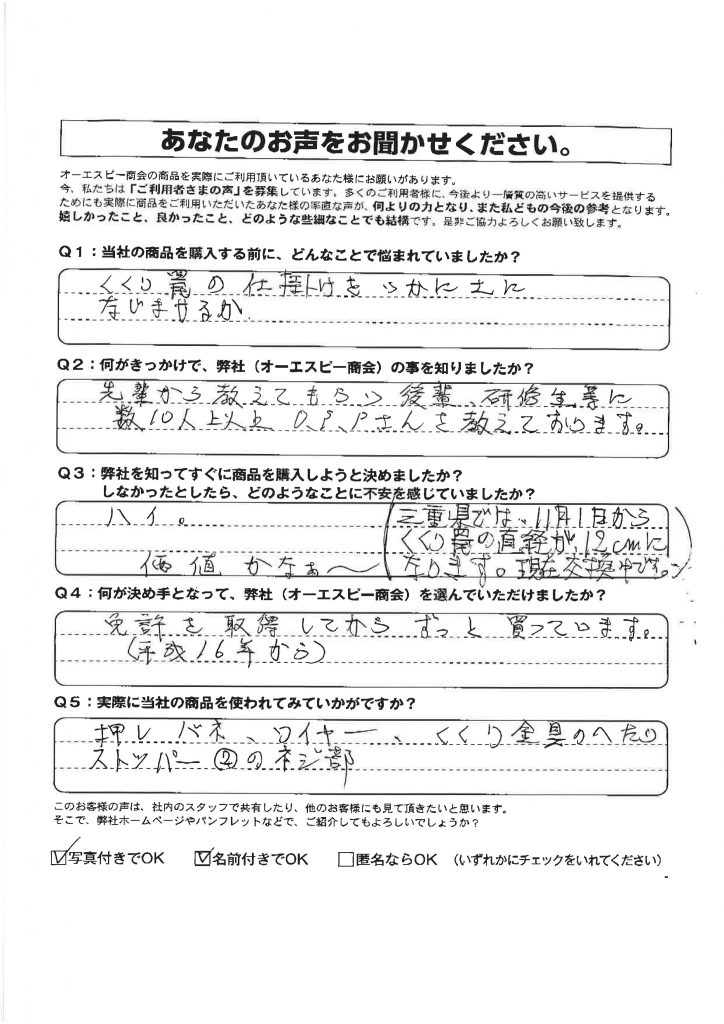 あなたのお声をお聞かせください。
オーエスピー商会の商品を実際にご利用頂いているあなた様にお願いがあります。
今、私たちは「ご利用者さまの声」を募集しています。多くのご利用者様に、今後より一層質の高いサービスを提供する
ためにも実際に商品をご利用いただいたあなた様の率直な声が、何よりの力となり、また私どもの今後の参考となります。
嬉しかったこと、良かったこと、どのような些細なことでも結構です。是非ご協力よろしくお願い致します。
Q1：当社の商品を購入する前に、どんなことで悩まれていましたか？
くくり罠の仕掛けをいかに土に
なじませるか
Q2：何がきっかけで、弊社（オーエスピー商会）の事を知りましたか？
先輩から教えてもらい後輩、研修生等に
数10人以上 O,S,Pさんを教えております。
Q3：弊社を知ってすぐに商品を購入しようと決めましたか？
しなかったとしたら、どのようなことに不安を感じていましたか？
ハイ。
価値かなぁ〜
(三重県では、11月1日から
くくり罠の直経が12cmに
なります。現在交換中です。)
Q4：何が決め手となって、弊社（オーエスピー商会）を選んでいただけましたか？
免許を取得してからずっと買っています。
(平成16年から)
Q5：実際に当社の商品を使われてみていかがですか？
押しバネ、ワイヤー、くくり金具のへたり
ストッパー②のネジ部
このお客様の声は、社内のスタッフで共有したり、他のお客様にも見て頂きたいと思います。
そこで、弊社ホームページやパンフレットなどで、ご紹介してもよろしいでしょうか？
☑写真付きでOK ☑名前付きでOK □匿名ならOK （いずれかにチェックをいれてください）